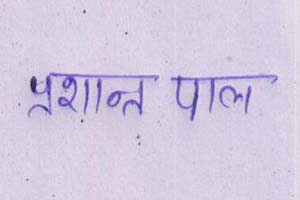 प्रशान्त पाल